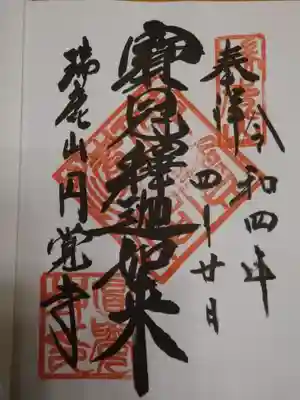 奉拝 令和四年
四月廿日
寶冠釋迦如来
瑞鹿山円覚寺